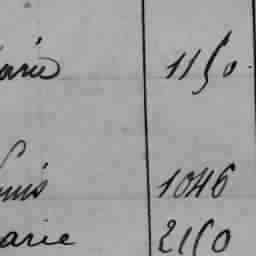 arie 1150
ouis 1046
arie 2150